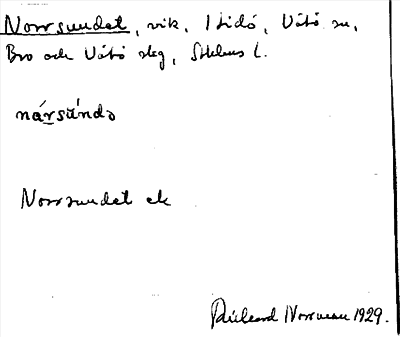 Norrsundet, vik, Isidö, Vätö sn,
Bro och Vätö skg, Sthlms l.
nårsúndə
Norrsundet ek
Rickard Norrman 1929.